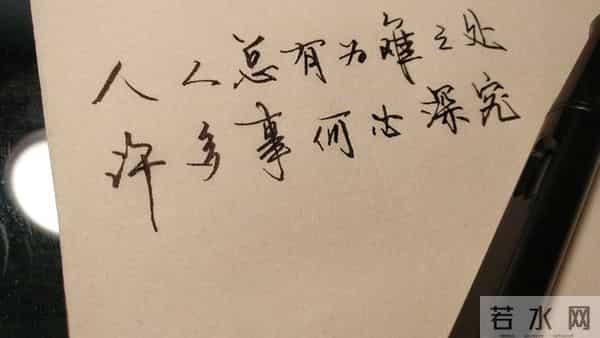 人人总有为难之处
许多事何必深究
若水网